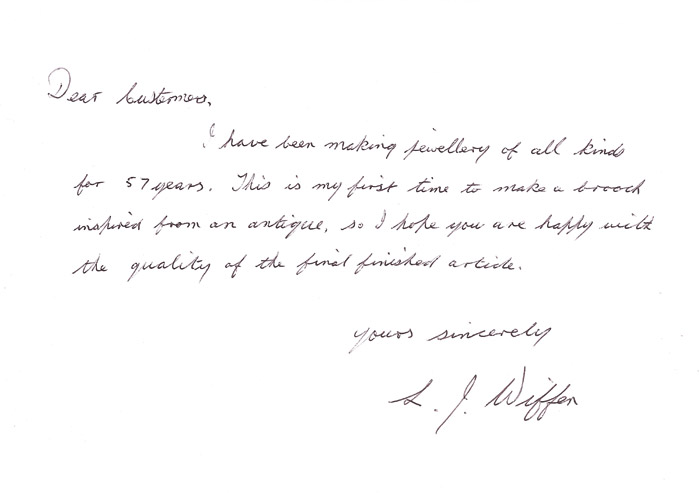 Dear Customers,
I have been making jewellery of all kinds
for 57 years. This is my first time to make a brooch
inspired from an antique, so I hope you are happy with
the quality of the final finished article.
yours sincerely
L. J. Wiffen